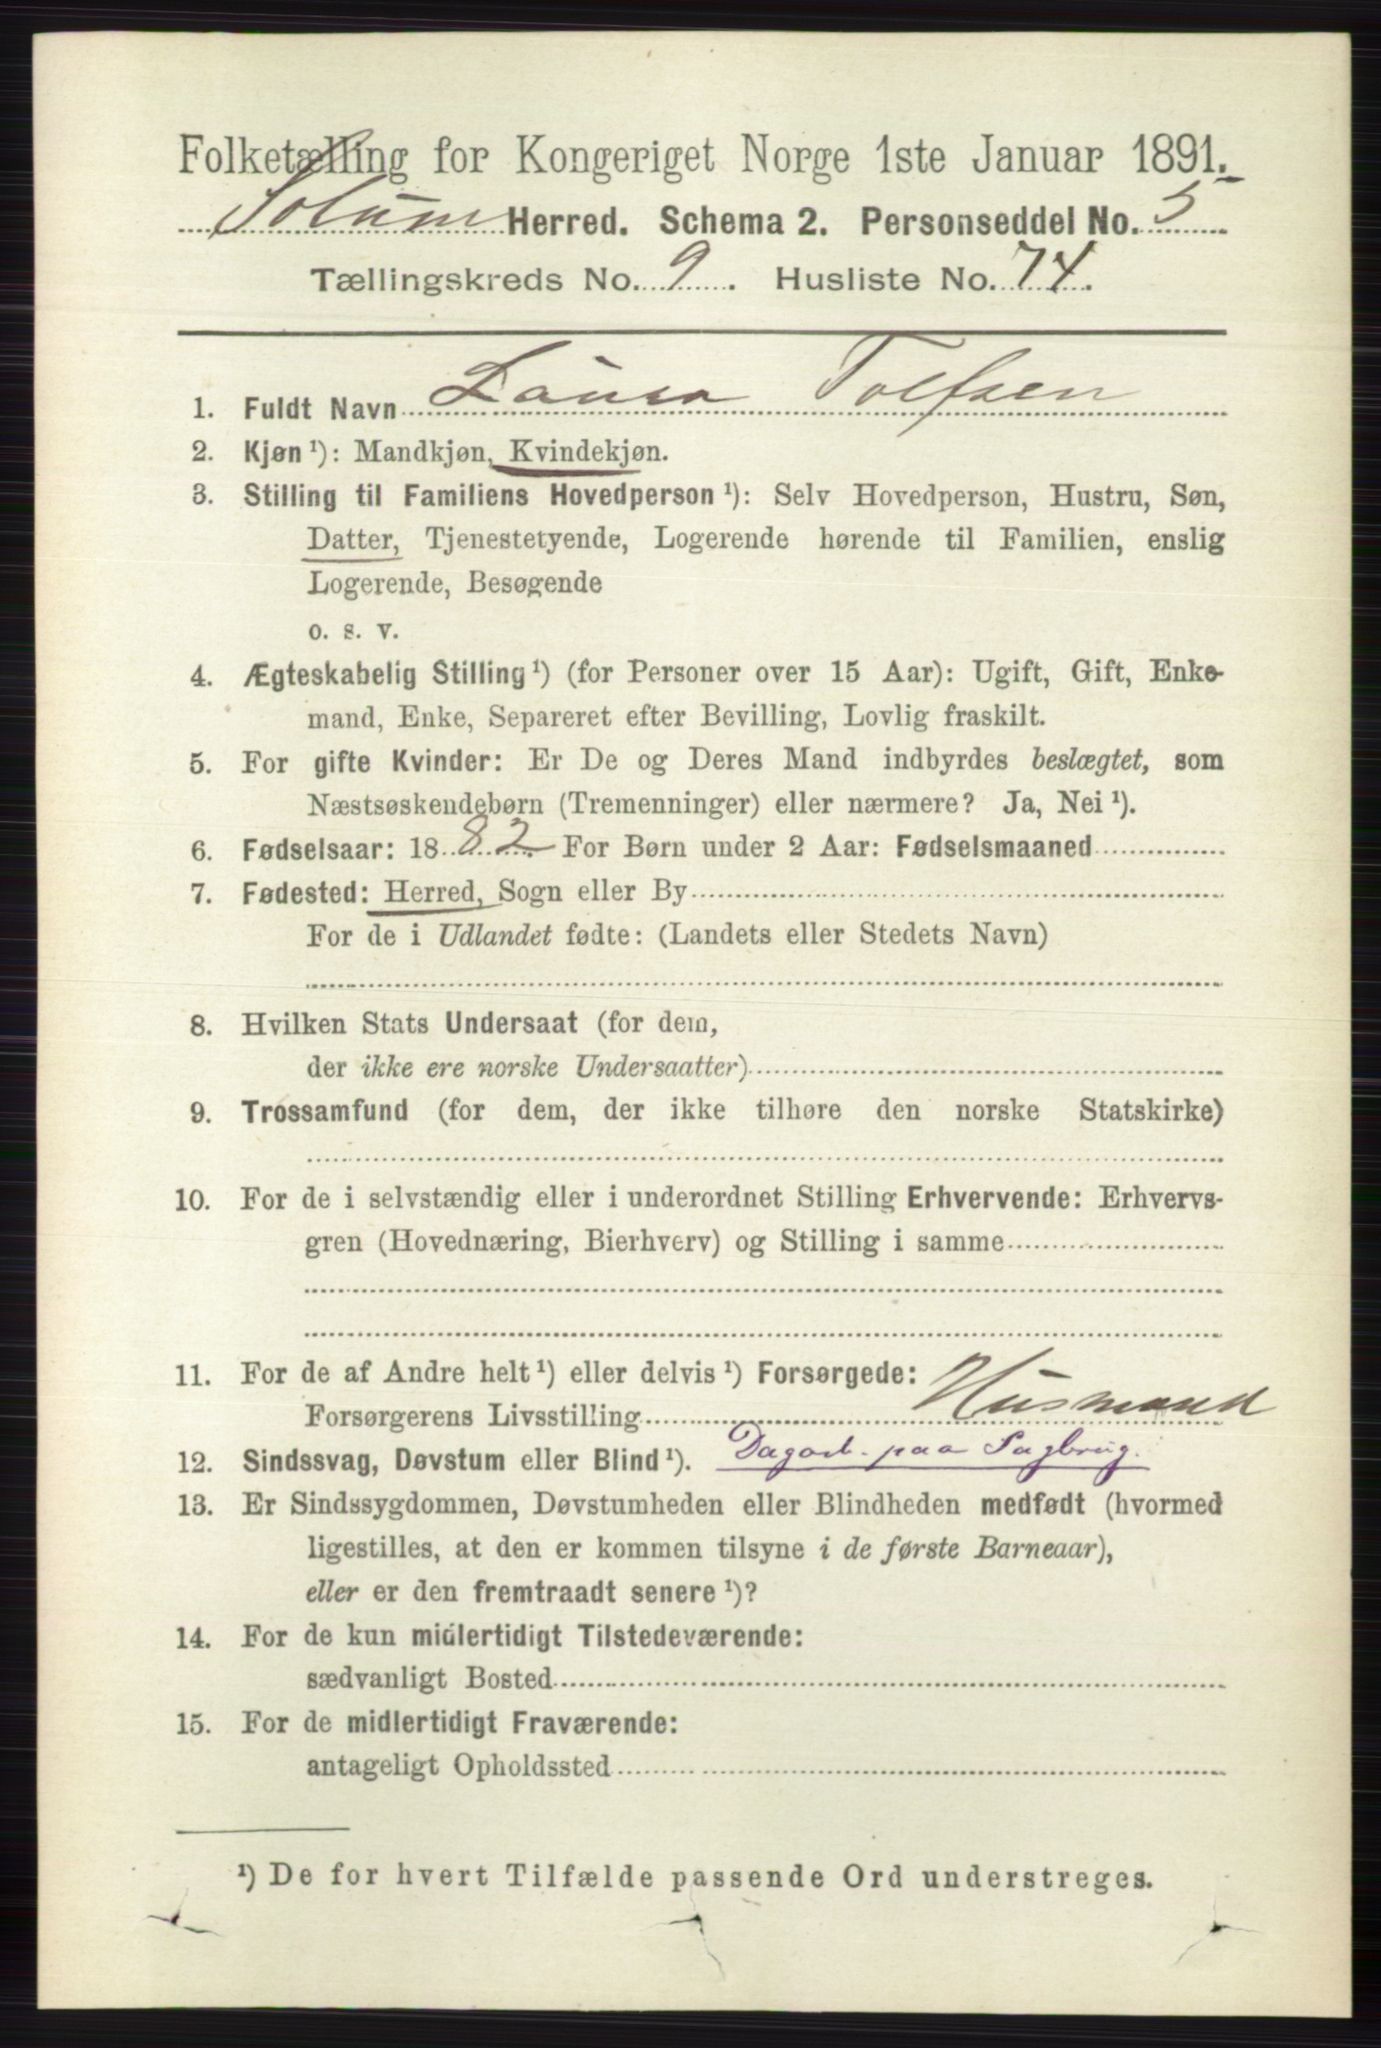 Folketælling for Kongeriget Norge 1ste Januar 1891.
Solum Herred. Schema 2. Personseddel No. 5
Tællingskreds No. 9. Husliste No. 74.
1. Fuldt Navn Laura Tolfsen
2. Kjøn ¹): Mandkjøn, Kvindekjøn.
3. Stilling til Familiens Hovedperson ¹): Selv Hovedperson, Hustru, Søn,
Datter, Tjenestetyende, Logerende hørende til Familien, enslig
Logerende, Besøgende
o. s. v.
4. Ægteskabelig Stilling ¹) (for Personer over 15 Aar): Ugift, Gift, Enke-
mand, Enke, Separeret efter Bevilling, Lovlig fraskilt.
5. For gifte Kvinder: Er De og Deres Mand indbyrdes beslægtet, som
Næstsøskendebørn (Tremenninger) eller nærmere? Ja, Nei ¹).
6. Fødselsaar: 1882. For Børn under 2 Aar: Fødselsmaaned
7. Fødested: Herred, Sogn eller By
For de i Udlandet fødte: (Landets eller Stedets Navn)
8. Hvilken Stats Undersaat (for dem,
der ikke ere norske Undersaatter)
9. Trossamfund (for dem, der ikke tilhøre den norske Statskirke)
10. For de i selvstændig eller i underordnet Stilling Erhvervende: Erhvervs-
gren (Hovednæring, Bierhverv) og Stilling i samme
11. For de af Andre helt ¹) eller delvis ¹) Forsørgede:
Forsørgerens Livsstilling Husmand
12. Sindssvag, Døvstum eller Blind ¹). Dagarb. paa Sagbrug.
13. Er Sindssygdommen, Døvstumheden eller Blindheden medfødt (hvormed
ligestilles, at den er kommen tilsyne i de første Barneaar),
eller er den fremtraadt senere ¹)?
14. For de kun midlertidigt Tilstedeværende:
sædvanligt Bosted
15. For de midlertidigt Fraværende:
antageligt Opholdssted
¹) De for hvert Tilfælde passende Ord understreges.